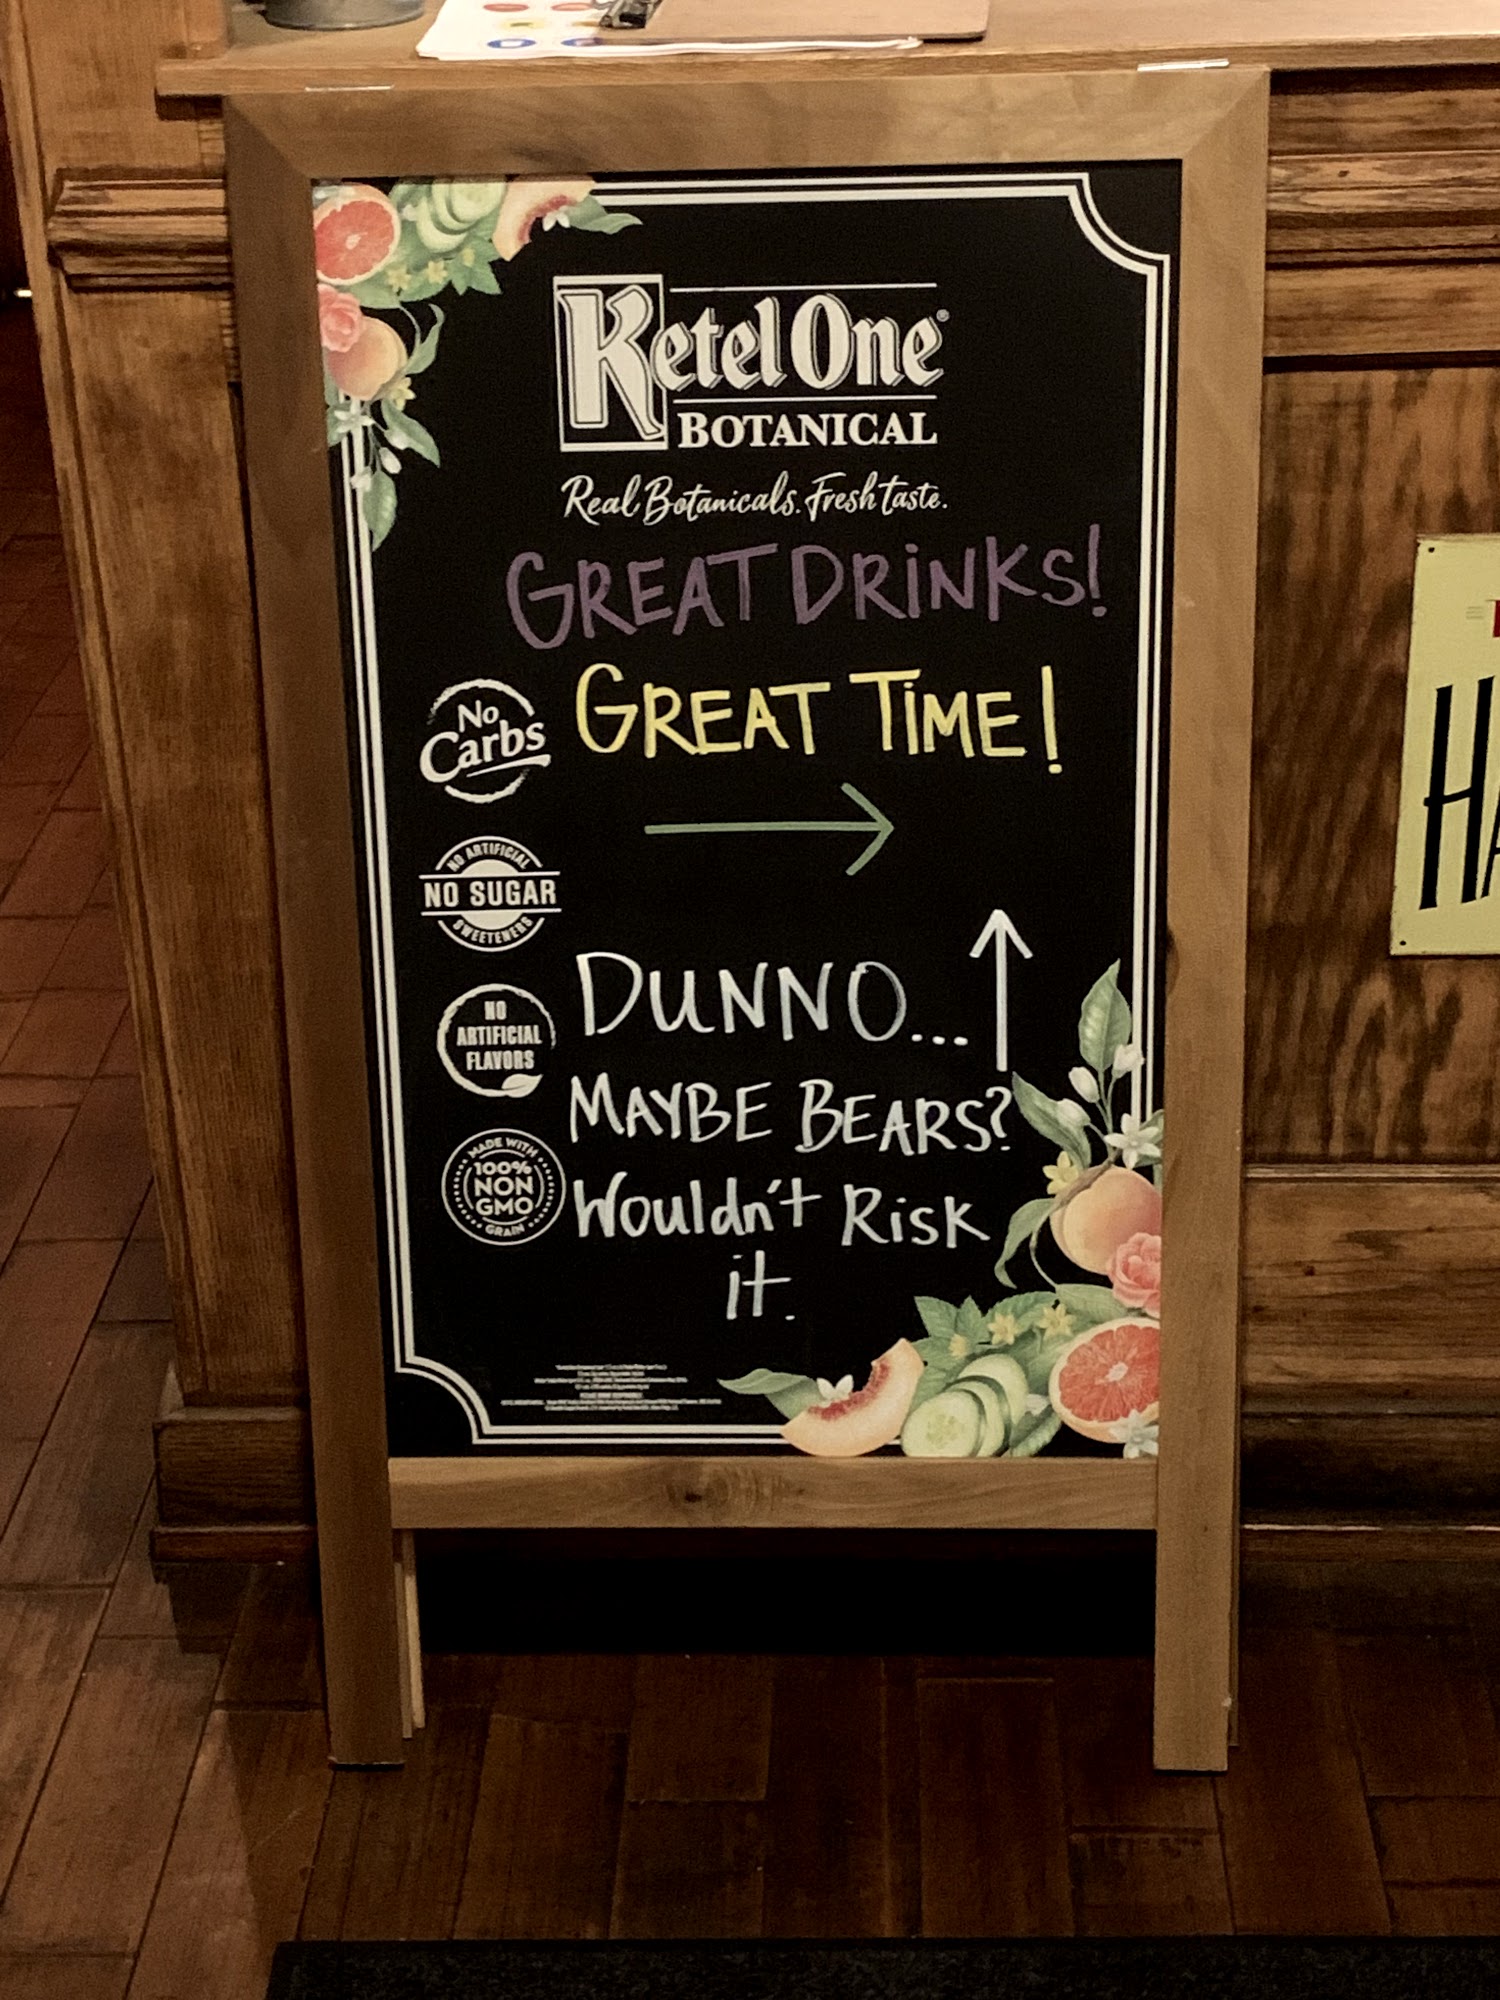 Ketel One®
BOTANICAL
Real Botanicals. Fresh taste.
GREAT DRINKS!
GREAT TIME!
No
Carbs
NO ARTIFICIAL
NO SUGAR
SWEETENERS
NO
ARTIFICIAL
FLAVORS
MADE WITH
100%
NON
GMO
GRAIN
DUNNO...
MAYBE BEARS?
Wouldn't Risk
it.